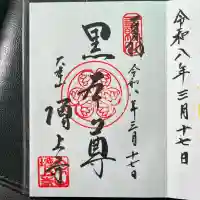 令和八年三月十七日
黒本尊
令和八年三月十七日
大本山
増上寺